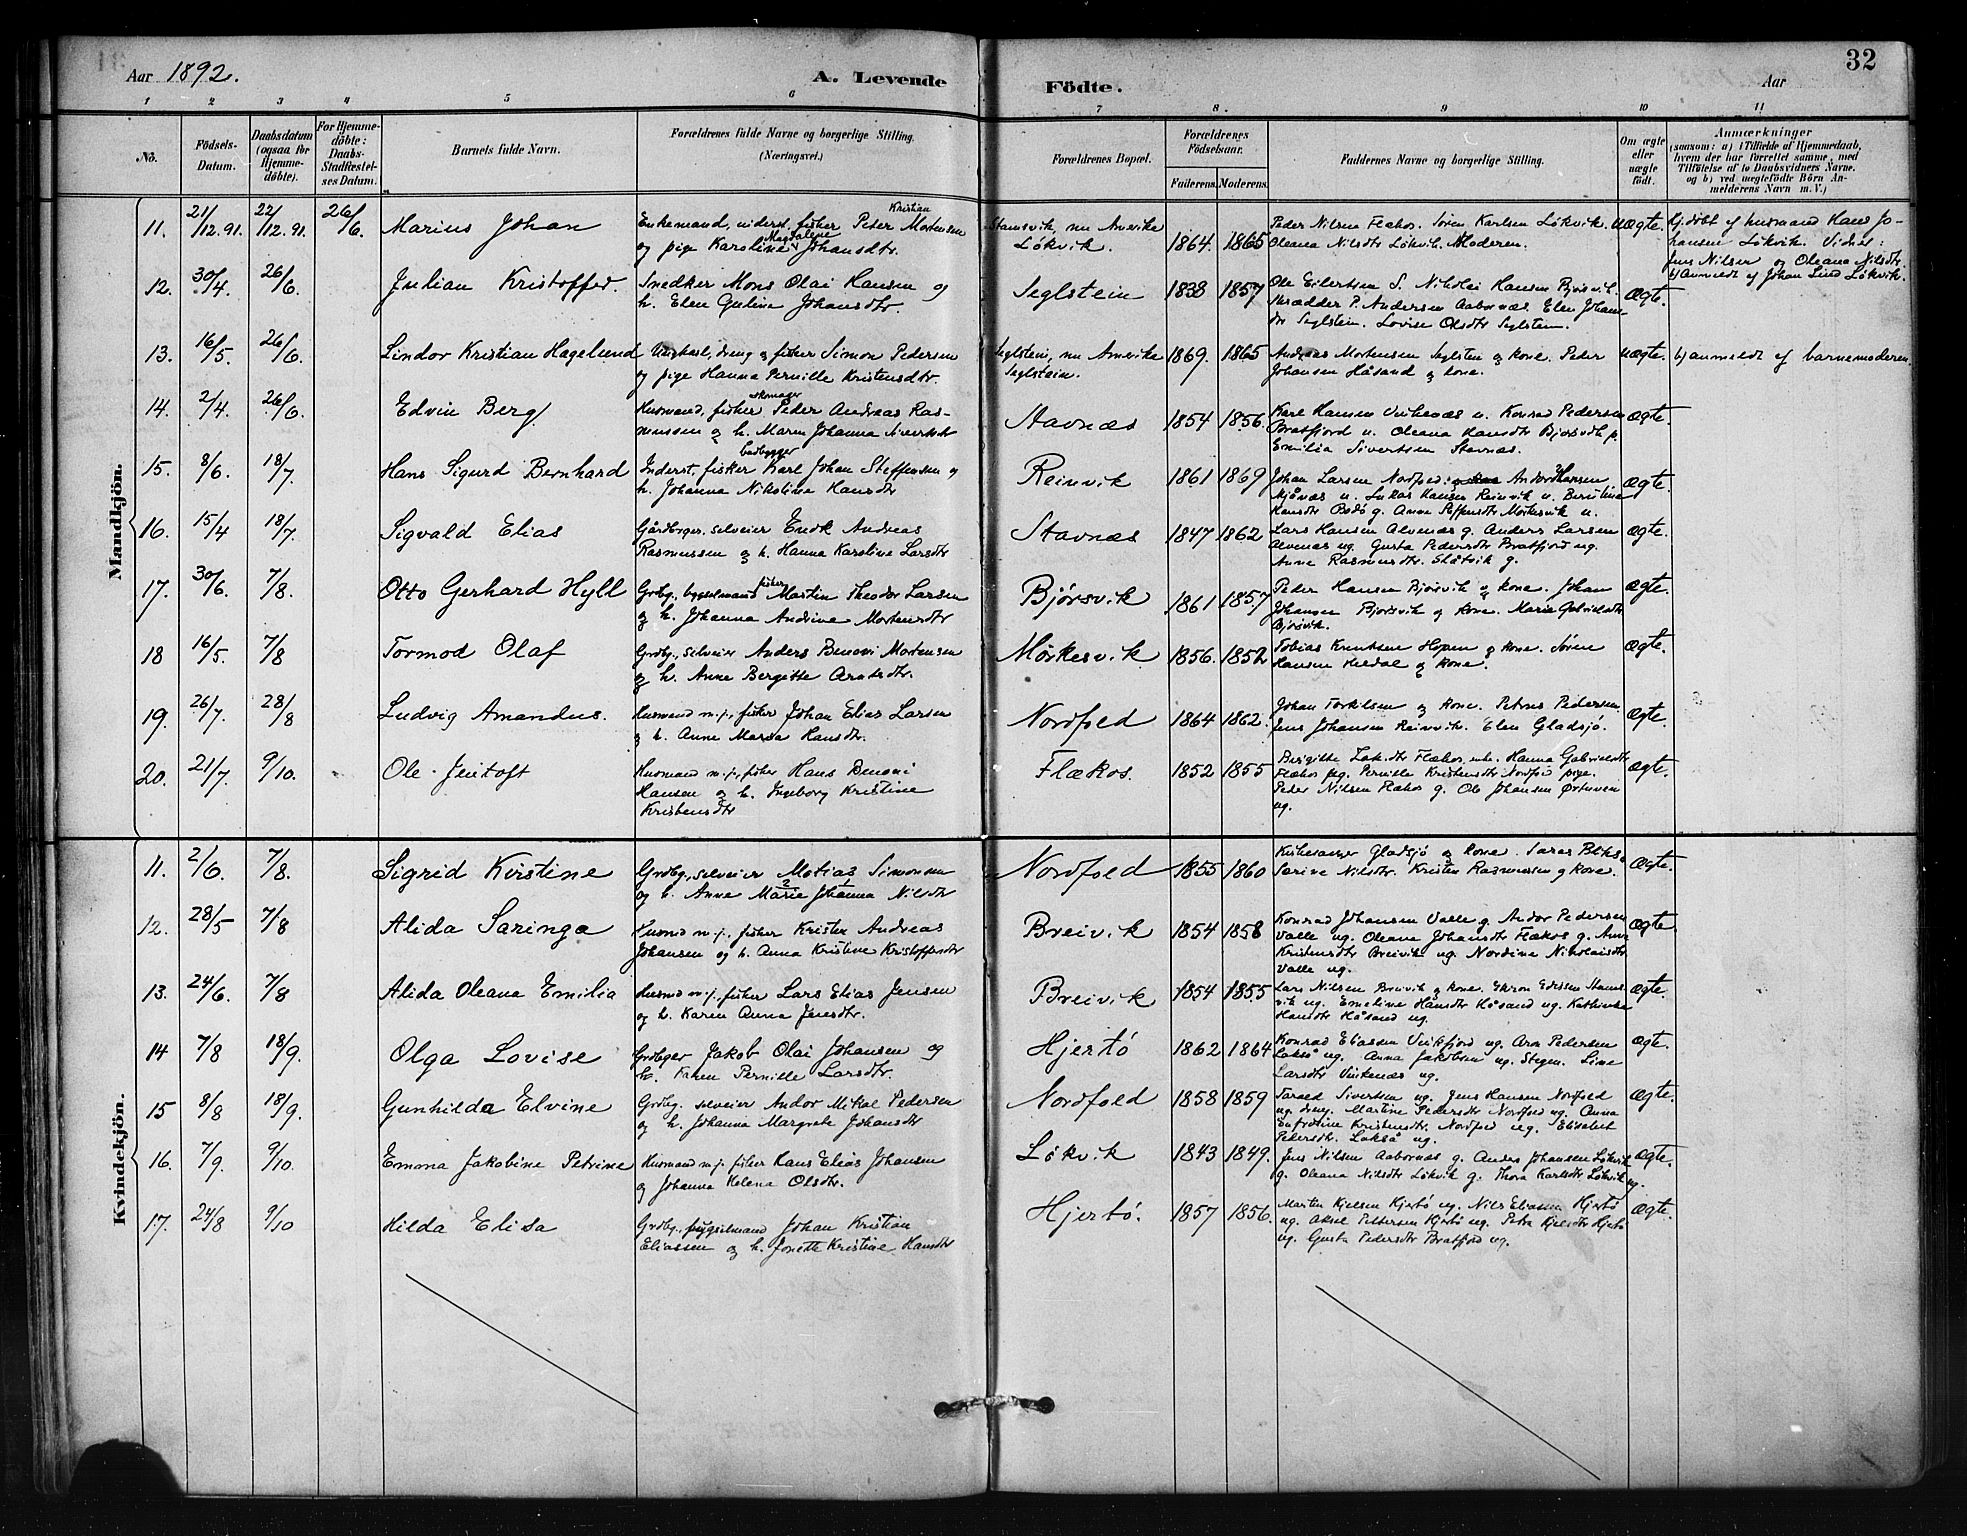 32
Aar 1892.
A. Levende
Födte.
Aar
1 2 3 4 5 6 7 8. 9 10 11
No.
Födsels-Datum.
Daabsdatum (ogsaa for Hjemme-döbte).
For Hjemme-döbte: Daabs-Stadfæstel-ses Datum.
Barnets fulde Navn.
Forældrenes fulde Navne og borgerlige Stilling. (Næringsvei.)
Forældrenes Bopæl.
Forældrenes Födselsaar.
Faderens.
Moderens.
Faddernes Navne og borgerlige Stilling.
Om ægte eller uægte födt.
Anmærkninger
(saasom: a) i Tilfælde af Hjemmedaab,
hvem der har forrettet samme, med
Tilföielse af to Daabsvidners Navne.
og b) ved uegtefödte Börn An-
melderens Navn m. V.)
Mandkjön.
11. 21/12.91. 22/12.91. 26/6. Marius Johan
Enkemand, inderst, fisker Peter Kristian Mortensen
og pige Karoline Magdalene Johansdtr.
Stamsvik, nu Amerika
Løkvik. 1864. 1865
Peder Nilsen Flækos. Søren Karlsen Løkvik.
Oleana Nilsdtr Løkvik. Moderen.
uægte.
Hj.døbt af husmand Hans Jo-
hansen Løkvik. Vidner:
Jens Nilsen og Oleana Nilsdtr.
b) anmeldt af Johan Lind Løkvik.
12. 30/4. 26/6. Julian Kristoffer.
Snedker Mons Olai Hansen og
h. Elen Gulina Johansdtr.
Seglstein 1838 1857
Ole Eilertsen S. Nikolai Hansen Bjørsvik.
Skrædder P. Andersen Aabornæs. Elen Johans-
dtr Seglstein. Lovise Olsdtr Seglstein.
Ægte.
13. 16/5. 26/6. Lindor Kristian Hagelund
Ungkarl, dreng og fisker Simon Pedersen
og pige Hanna Pernille Kristensdtr.
Seglstein, nu Amerika
Seglstein. 1869. 1865
Andreas Mortensen Seglsten og kone. Peder
Johansen Håsand og kone.
uægte. b) anmeldt af barnemoderen.
14. 2/4. 26/6. Edvin Berg
Husmand, fisker skomager Peder Andreas Ras-
mussen og h. Maren Johanna Sivertsdtr
Stavnæs 1854 1856.
Karl Hansen Vinkenæs u. Konrad Pedersen
Bratfjord u. Oleana Hansdtr Bjørsvik p.
Emilia Sivertsen Stavnæs.
Ægte.
15. 8/6. 18/7. Hans Sigurd Bernhard
Inderst, fisker badbygger Karl Johan Steffensen og
h. Johanna Nikoline Hansdtr
Reinvik 1861 1869
Johan Larsen Nordfold. Andor Hansen
Mjånæs u. Lukas Hansen Reinvik u. Berntine
Hansdtr Bodø g. Anne Steffensdtr Mørkesvik u.
Ægte.
16. 15/4 18/7. Sigvald Elias
Gårdbruger, selveier Enok Andreas
Rasmussen og h. Hanna Karoline Larsdtr
Stavnæs 1847 1862
Lars Hansen Alvenæs g. Anders Larsen
Alvenæs ug. Gusta Pedersdtr Bratfjord ug.
Anne Rasmusdtr. Skåtvik g.
Ægte.
17. 30/6. 7/8. Otto Gerhard Hyll
Grdbg., bygselmand fisker Martin Theodor Larsen
og h. Johanna Andrine Mortensdtr
Bjørsvik 1861 1857
Peder Hansen Bjørsvik og kone. Johan
Johansen Bjørsvik og kone. Maria Gabrielsdtr
Bjørsvik.
Ægte.
18 16/5. 7/8 Tormod Olaf
Grdbg., selveier Anders Benoni Mortensen
og h. Anne Bergitte Arntsdtr.
Mørkesvik 1856. 1852
Tobias Knutsen Hopen og kone. Søren
Hansen Heldal og kone.
Ægte.
19. 26/7. 28/8 Ludvig Amandus.
Husmand m.j., fisker Johan Elias Larsen
og h. Anne Marsa Hansdtr.
Nordfold 1864 1862.
Johan Torkilsen og kone. Petrus Pedersen.
Jens Johansen Reinvik. Elen Gladsjö.
Ægte.
20. 21/7. 9/10. Ole Jentoft
Husmand m.j., fisker Hans Benoni
Hansen og h. Ingeborg Kristine
Kristensdtr
Flækos. 1852 1855
Birgitte Flækos enk. Hanna Gabrielsdtr
Flækos pg. Pernille Kristensdtr Nordfold pige.
Peder Nilsen Flækos g. Ole Johansen Ørtuven
ug.
Ægte.
Kvindekjön.
11. 2/6. 7/8. Sigrid Kristine
Grdbg., selveier Matias Simonsen
og h. Anne Marie Johanna Nilsdtr
Nordfold 1855 1860
Kirkesanger Gladsjø og kone.
Sarine Nilsdtr. Kristen Rasmussen og kone.
Ægte.
12. 28/5 7/8 Alida Saringa
Husmd m.j., fisker Krister Andreas
Johansen og h. Anna Kristine Kristoffersdtr
Breivik 1854 1858
Konrad Johansen Valle g. Andor Pedersen
Valle ug. Oleana Johansdtr Flækos g. Anne
Kristensdtr Breivik ug. Nordine Nikolaisdtr
Valle ug.
Ægte.
13. 24/6. 7/8 Alida Oleana Emilia
Husmd m.j., fisker Lars Elias Jensen
og h. Karen Anna Jensdtr.
Breivik 1854 1855
Lars Nilsen Breivik og kone. Edissen Stams-
vik ug. Emeline Hansdtr Håsand ug. Kathinka
Hansdtr Håsand ug.
Ægte.
14 7/8 18/9. Olga Lovise
Grdbger Jakob Olai Johansen og
h. Karen Pernille Larsdtr.
Hjertö 1862 1864
Konrad Eliassen Vinkfjord ug. Aron Pedersen
Lakså ug. Anna Jakobsen ug. Stegen. Line
Larsdtr Vinkenæs ug.
Ægte.
15 8/8 18/9. Gunhilda Elvine
Grdbg. selveier Andor Mikal Pedersen
og h. Johanna Margrete Johansdtr
Nordfold 1858 1859
Tarald Sivertsen ug. Jens Hansen Nordfold
ug. dreng. Martine Pedersdtr Nordfold ug. Anna
Eufrosine Kristensdtr. Nordfold ug. Elisabet
Pedersdtr. Lakså ug.
Ægte.
16. 7/9. 9/10. Emma Jakobine Petrine
Husmand m.j. fisker Hans Elias Johansen
og Johanna Helena Olsdtr.
Løkvik 1843 1849.
Jens Nilsen Aabornæs g. Anders Johansen Løkvik
g. Oleana Nilsdtr Løkvik g. Thora Karlsdtr Løkvik ug.
Ægte.
17. 24/8 9/10 Hilda Elisa
Grdbg., bygselmand Johan Kristian
Eliassen og h. Jonette Kristine Hansdtr
Hjertö. 1857 1856.
Martin Kjelsen Hjertö ug. Nils Eliassen Hjertö
ug. Aksel Pettersen Hjertö ug. Petra Kjelsdtr Hjertö
ug. Gusta Pedersdtr Bratfjord ug.
Ægte.